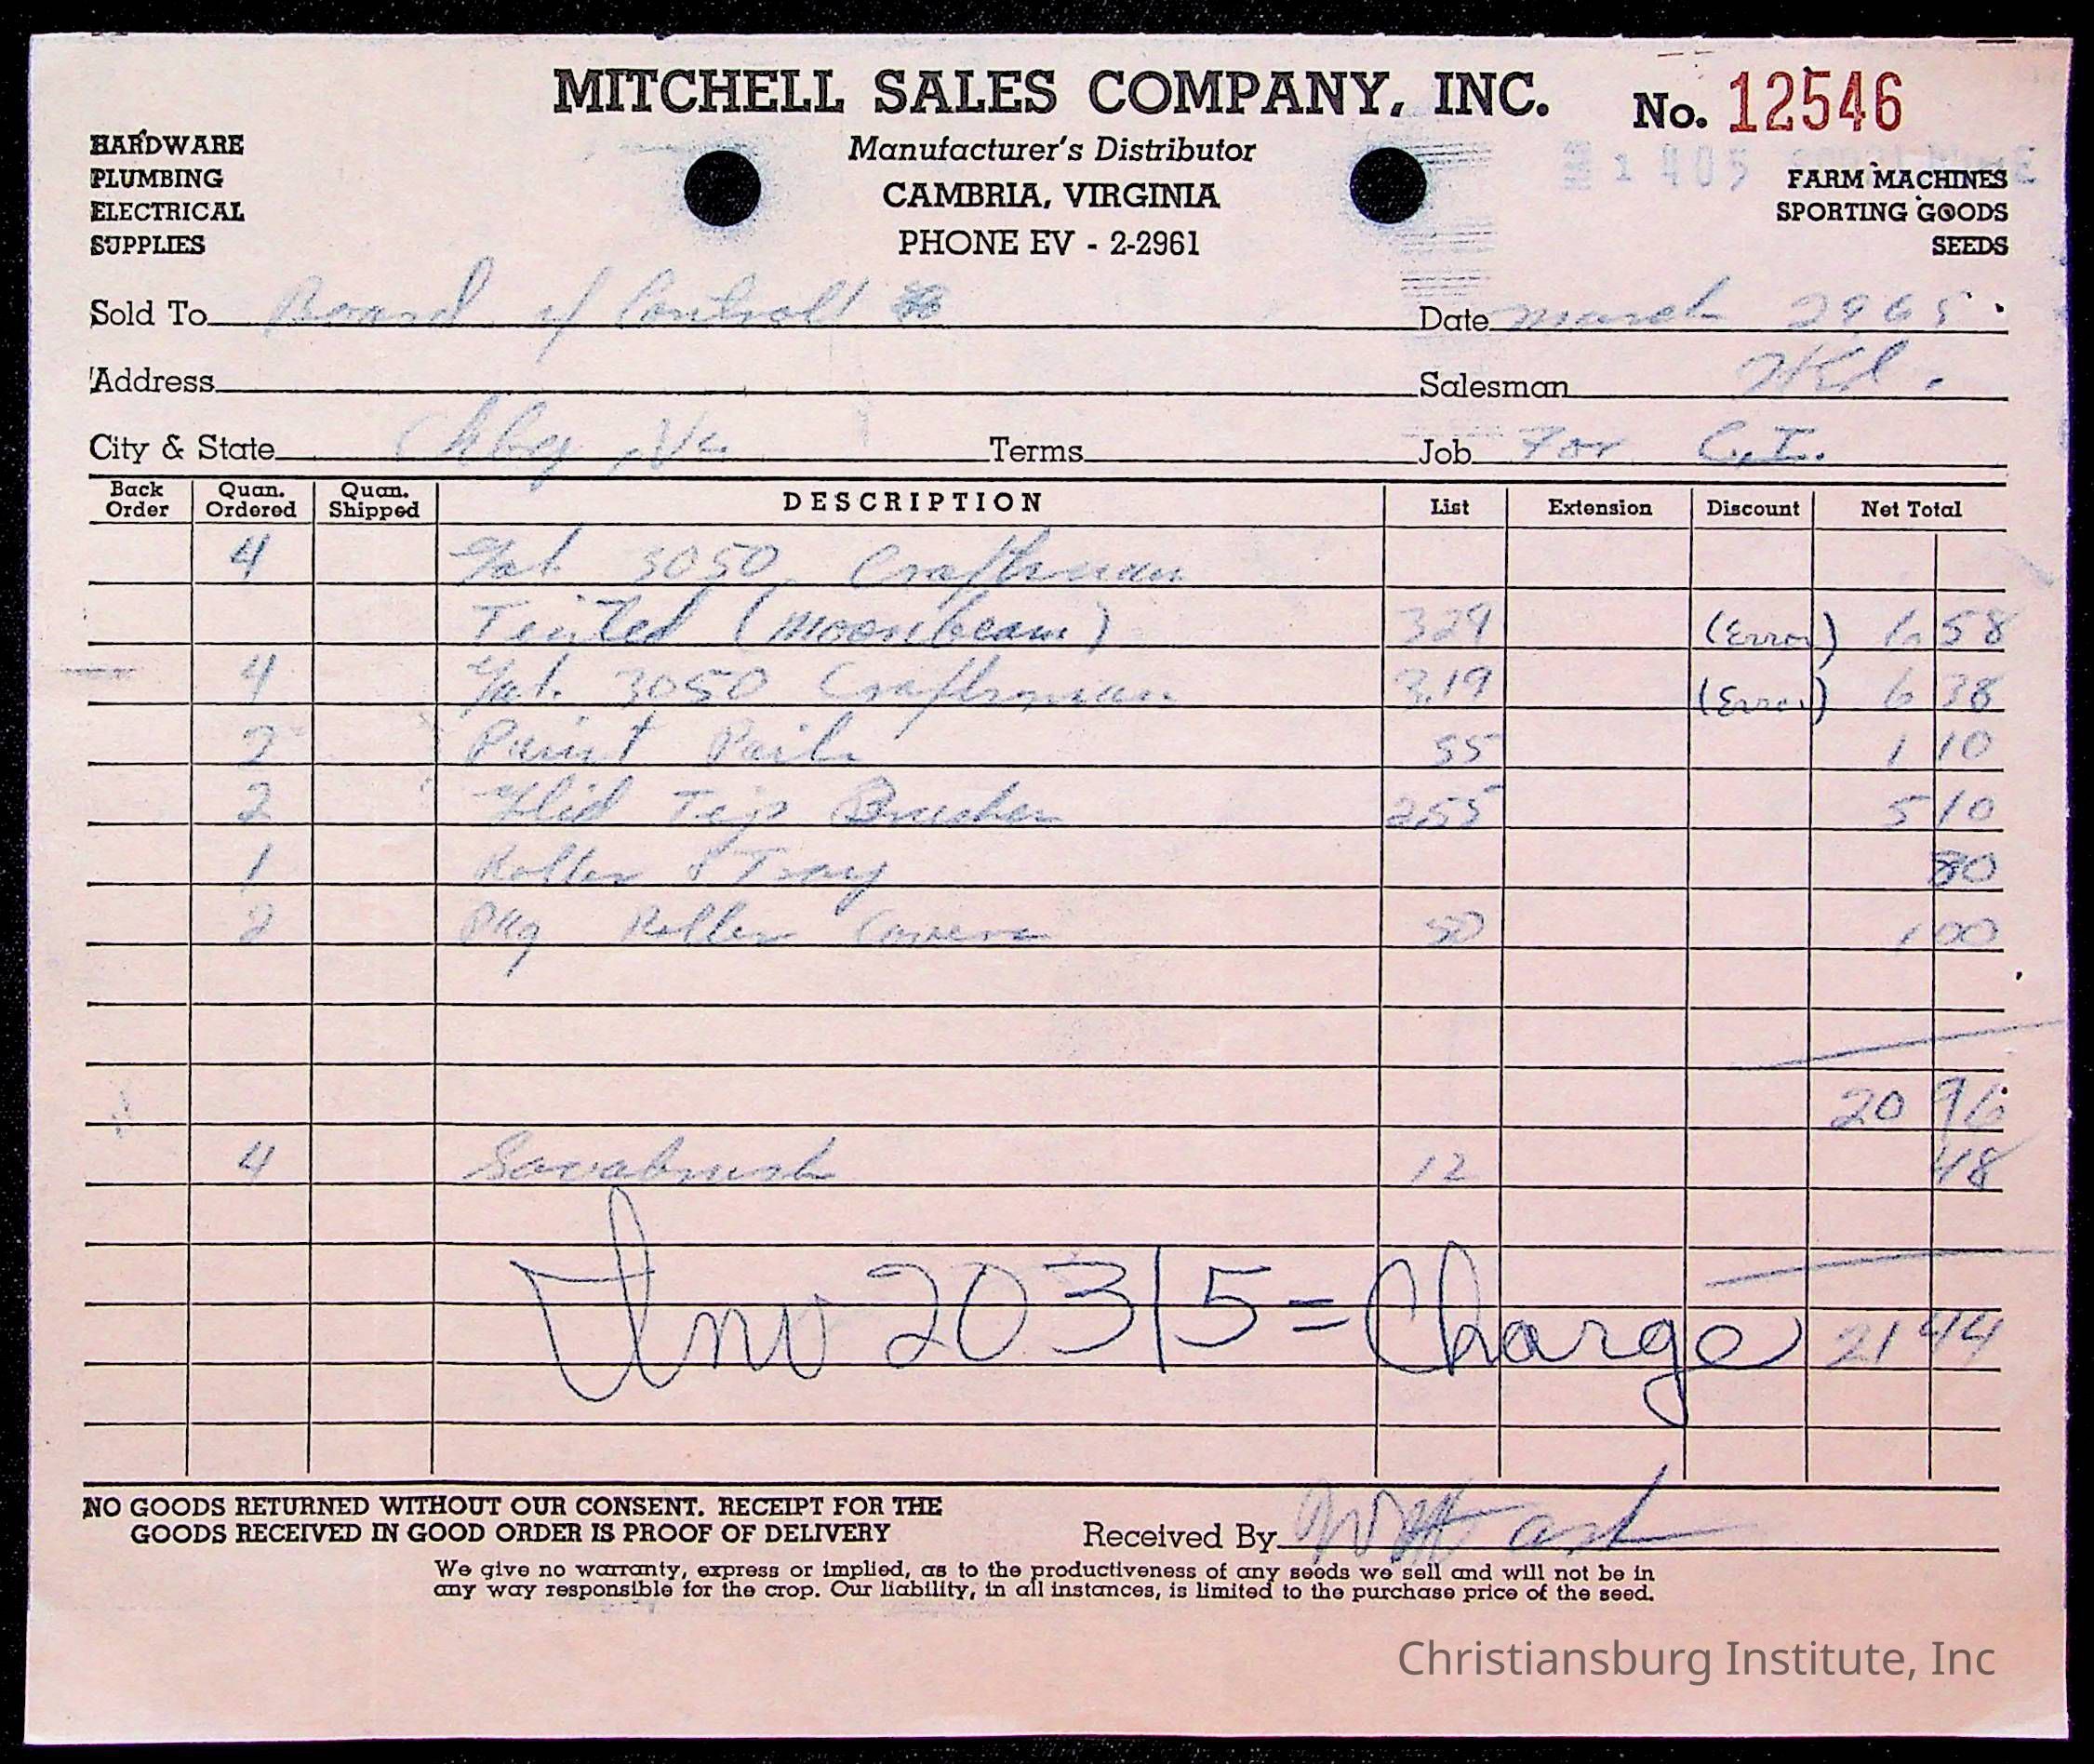 MITCHELL SALES COMPANY, INC.
No. 12546
HARDWARE
PLUMBING
ELECTRICAL
SUPPLIES
Manufacturer's Distributor
CAMBRIA, VIRGINIA
PHONE EV - 2-2961
FARM MACHINES
SPORTING GOODS
SEEDS
Sold To Board of Control
Date March 2965
Address
Salesman
City & State Chbg, Va
Terms
Job For C.I.
Back Order Quan. Ordered Quan. Shipped DESCRIPTION List Extension Discount Net Total
4 Gal 3050 Craftsman
Tinted (Moonbeam) 329 (Error) 6 58
4 Gal. 3050 Craftsman 3.19 (Error) 6 38
2 Paint Pails 55 1 10
2 Flid Tip Brushes 255 5 10
1 Roller & Tray 80
2 Pkg Roller Covers 50 1 00
20 96
4 Savabrush 12 48
Inv 20315 = Charge 21 44
NO GOODS RETURNED WITHOUT OUR CONSENT. RECEIPT FOR THE
GOODS RECEIVED IN GOOD ORDER IS PROOF OF DELIVERY
Received By
We give no warranty, express or implied, as to the productiveness of any seeds we sell and will not be in
any way responsible for the crop. Our liability, in all instances, is limited to the purchase price of the seed.
Christiansburg Institute, Inc